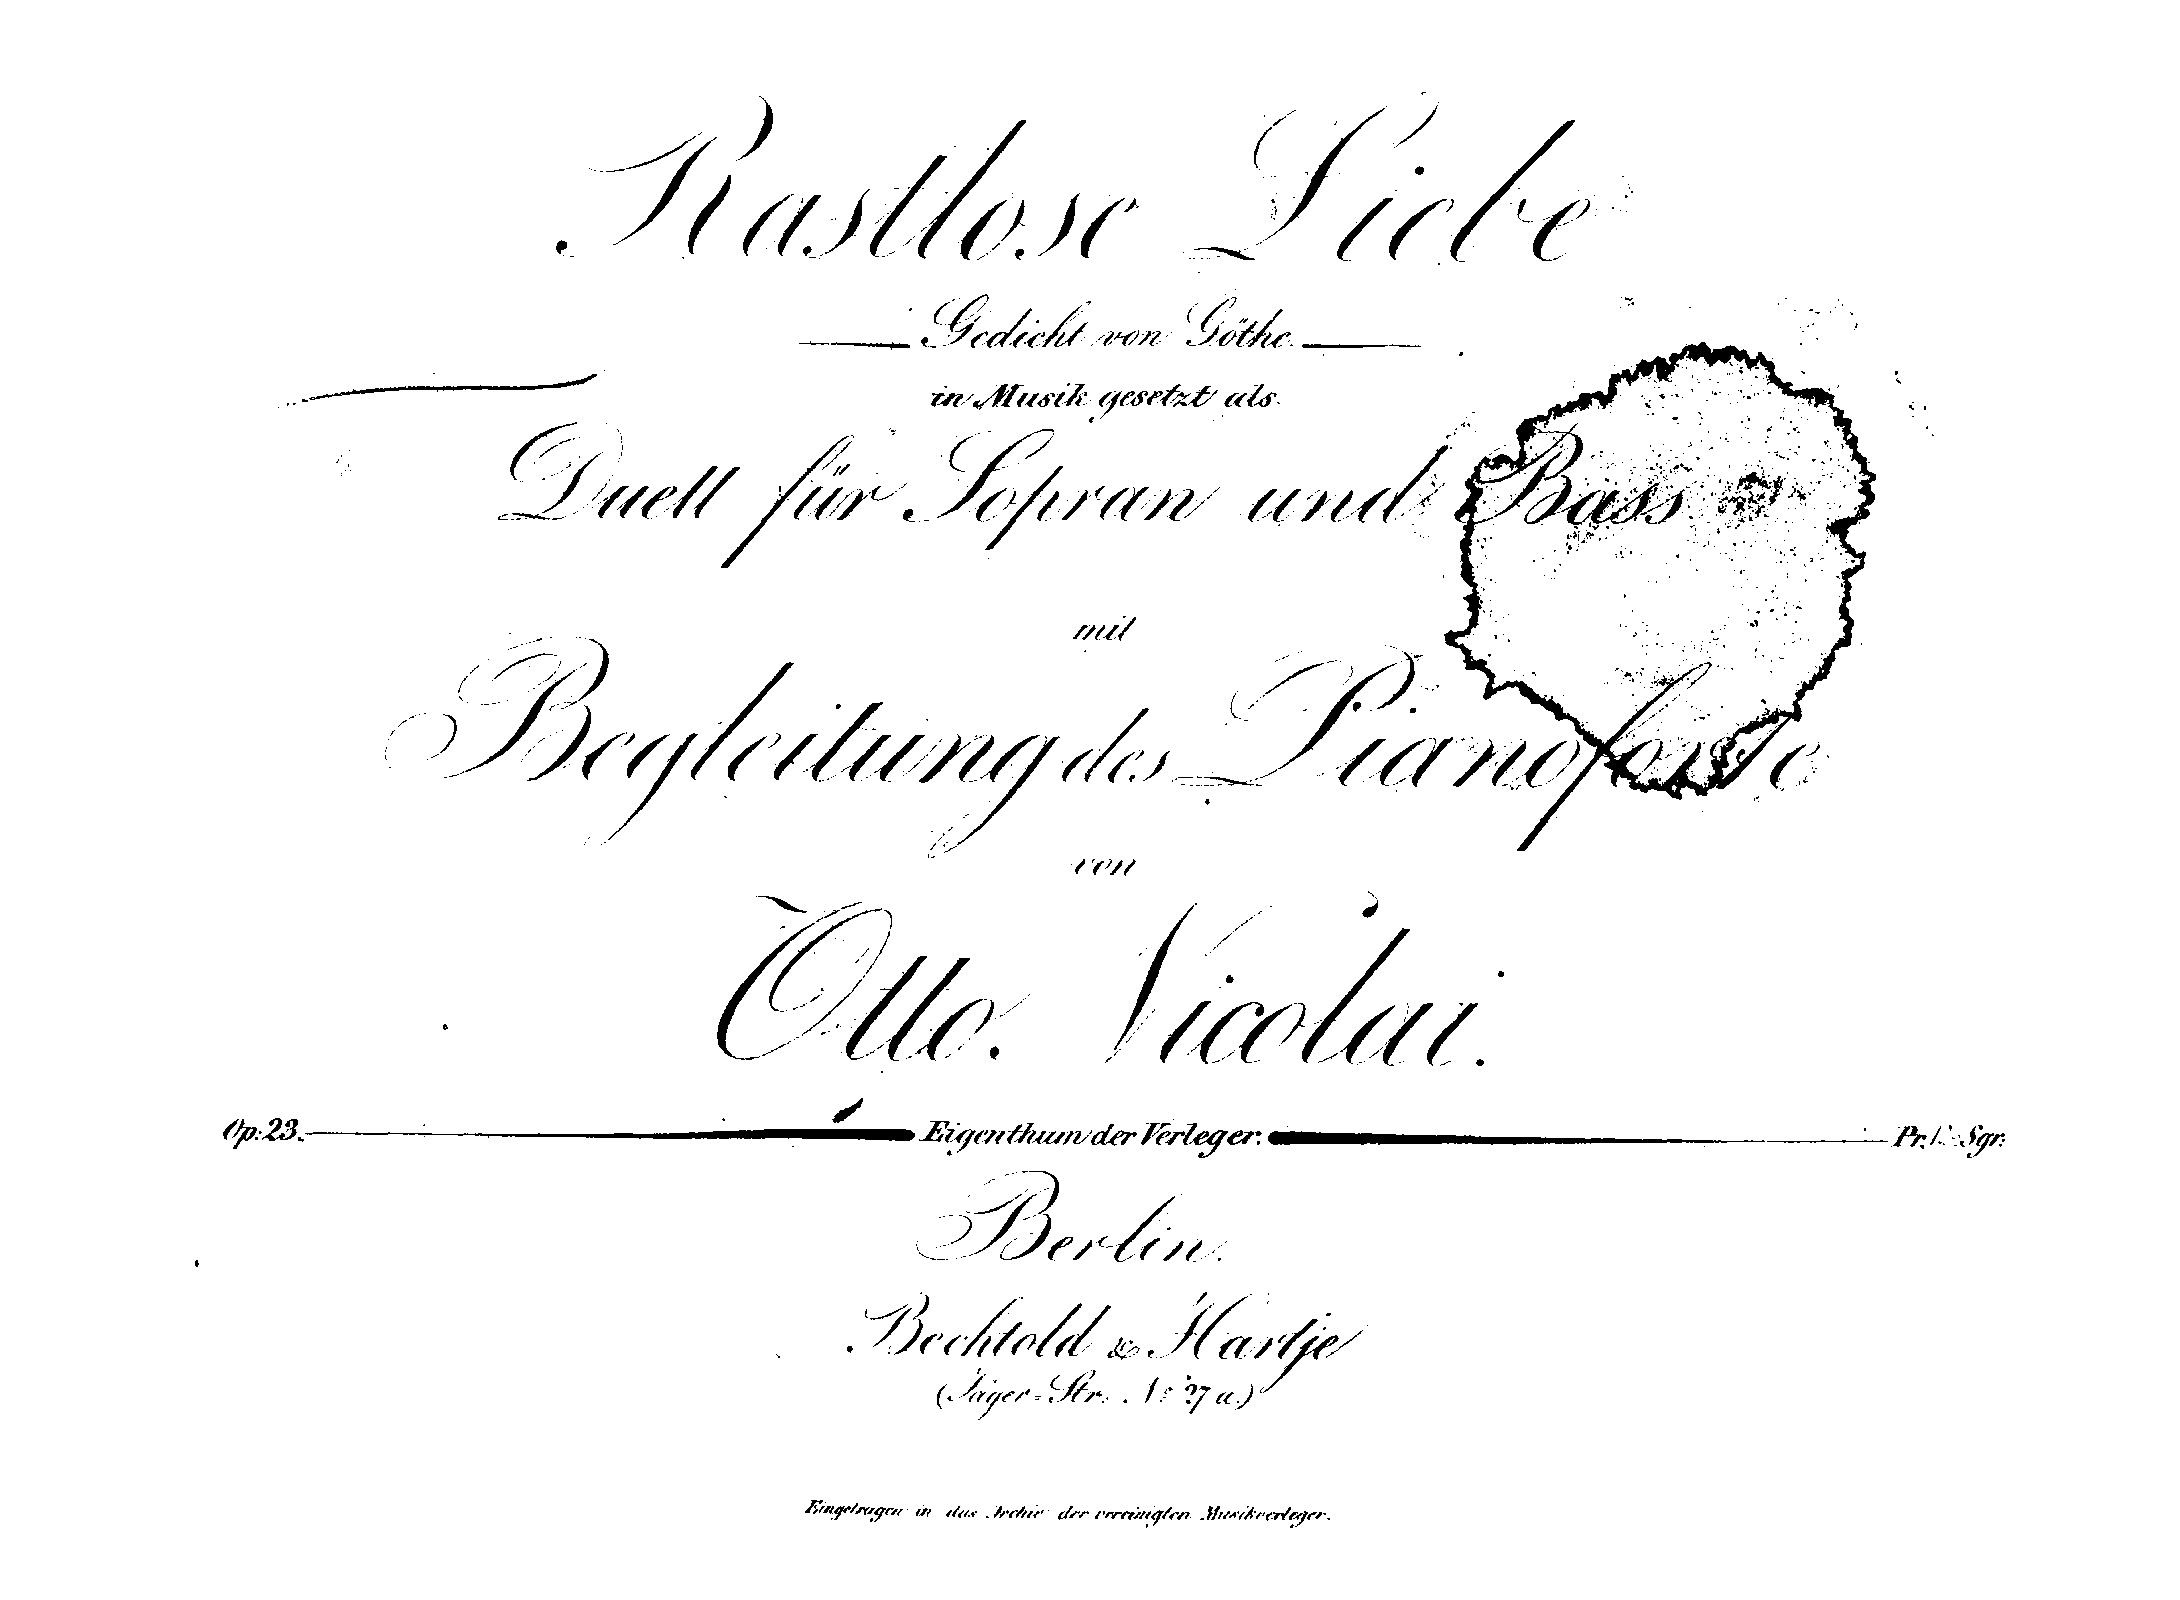 Rastlose Liebe
Gedicht von Göthe.
in Musik gesetzt als
Duett für Sopran und Bass
mit
Begleitung des Pianoforte
von
Otto Nicolai.
Op: 23. Eigenthum der Verleger. Pr. Sgr.
Berlin.
Bechtold & Hartje
(Jäger-Str. No 27 a.)
Eingetragen in das Archiv der vereinigten Musikverleger.